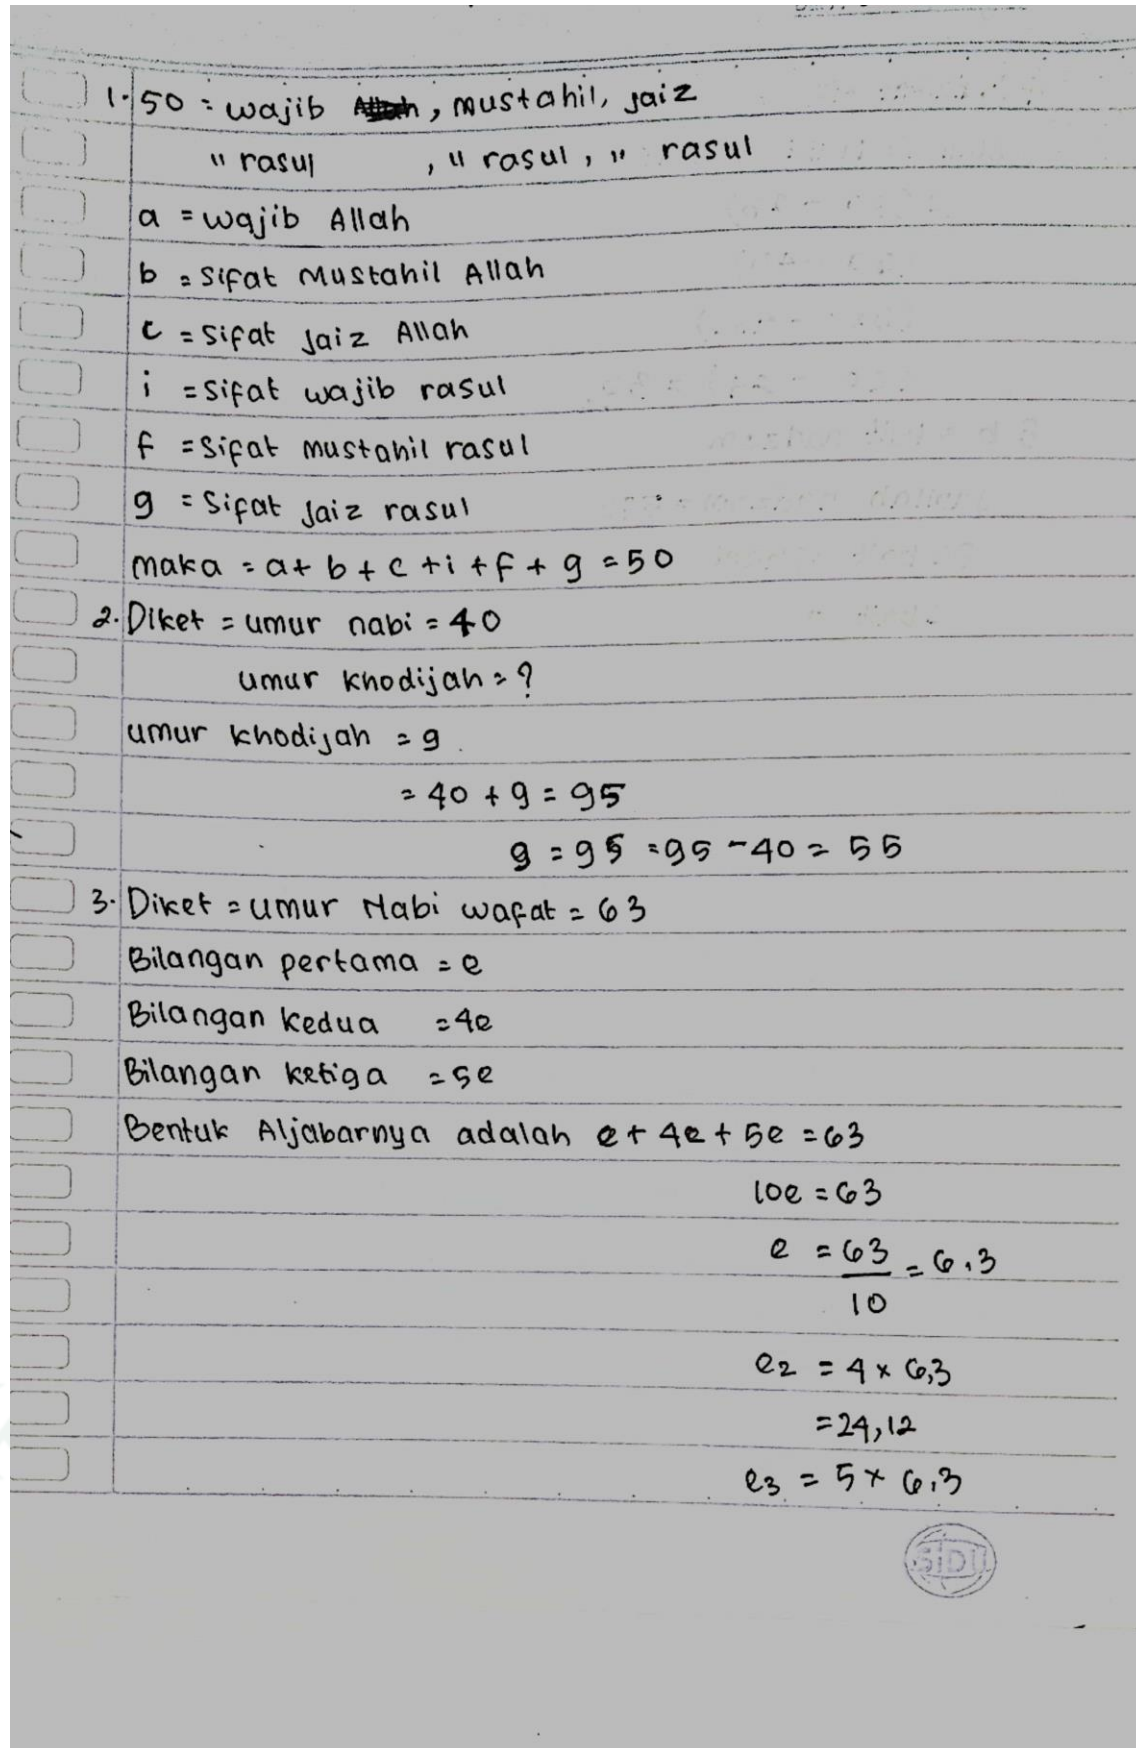 1. 50 = wajib Allah, mustahil, jaiz
" rasul , " rasul , " rasul
a = wajib Allah
b = Sifat Mustahil Allah
c = Sifat Jaiz Allah
i = Sifat wajib rasul
f = Sifat mustahil rasul
g = Sifat Jaiz rasul
maka = a + b + c + i + f + g = 50
2. Diket = umur nabi = 40
umur khodijah = ?
umur khodijah = g
= 40 + g = 95
g = 95 = 95 - 40 = 55
3. Diket = umur Nabi wafat = 63
Bilangan pertama = e
Bilangan kedua = 4e
Bilangan ketiga = 5e
Bentuk Aljabarnya adalah e + 4e + 5e = 63
10e = 63
e = 63 = 6.3
10
e2 = 4 x 6,3
= 24,12
e3 = 5 x 6,3
SIDU